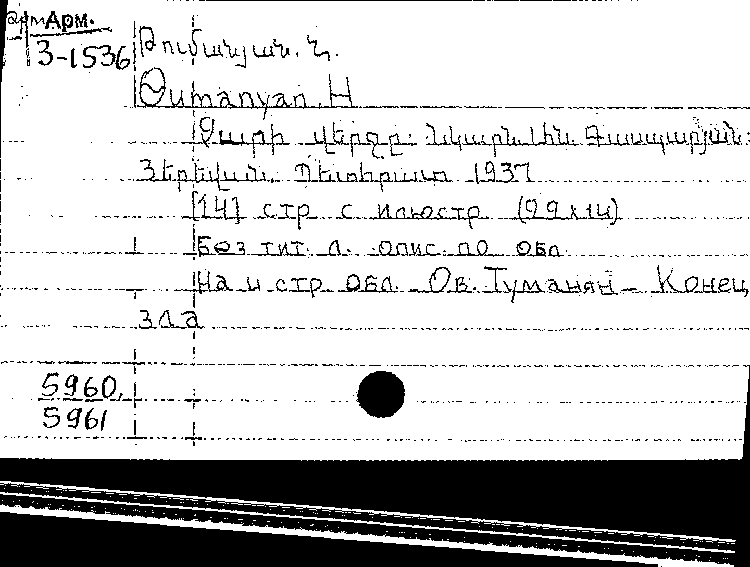 Арм.
3-1536
Թումանյան. Հ.
Θumanyan. H
Չարի վերջը: Նկարն. Լին. Գասպարյան:
Յերեվան. Պետհրատ 1937
[14] стр с илюстр (22x14)
Без тит. л. опис. по обл.
На 4 стр. обл. Ов. Туманян - Конец
зла
5960,
5961